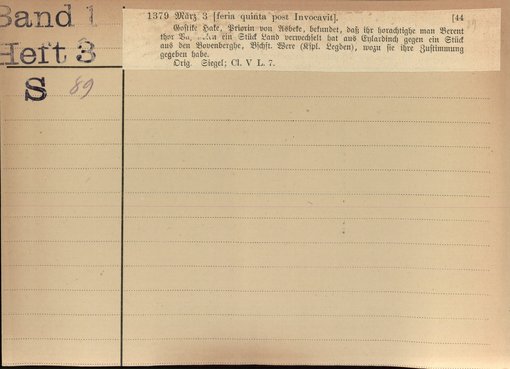 Band 1
Heft 3
S 89
1379 März 3 [feria quinta post Invocavit]. [44
Gostike Hake, Priorin von Asbeke, bekundet, daß ihr horachtighe man Berent
thor ein Stück Land verwechselt hat aus Eylardinch gegen ein Stück
aus den Bovenberghe, Bschft. Were (Kspl. Legden), wozu sie ihre Zustimmung
gegeben habe.
Orig. Siegel; Cl. V L. 7.